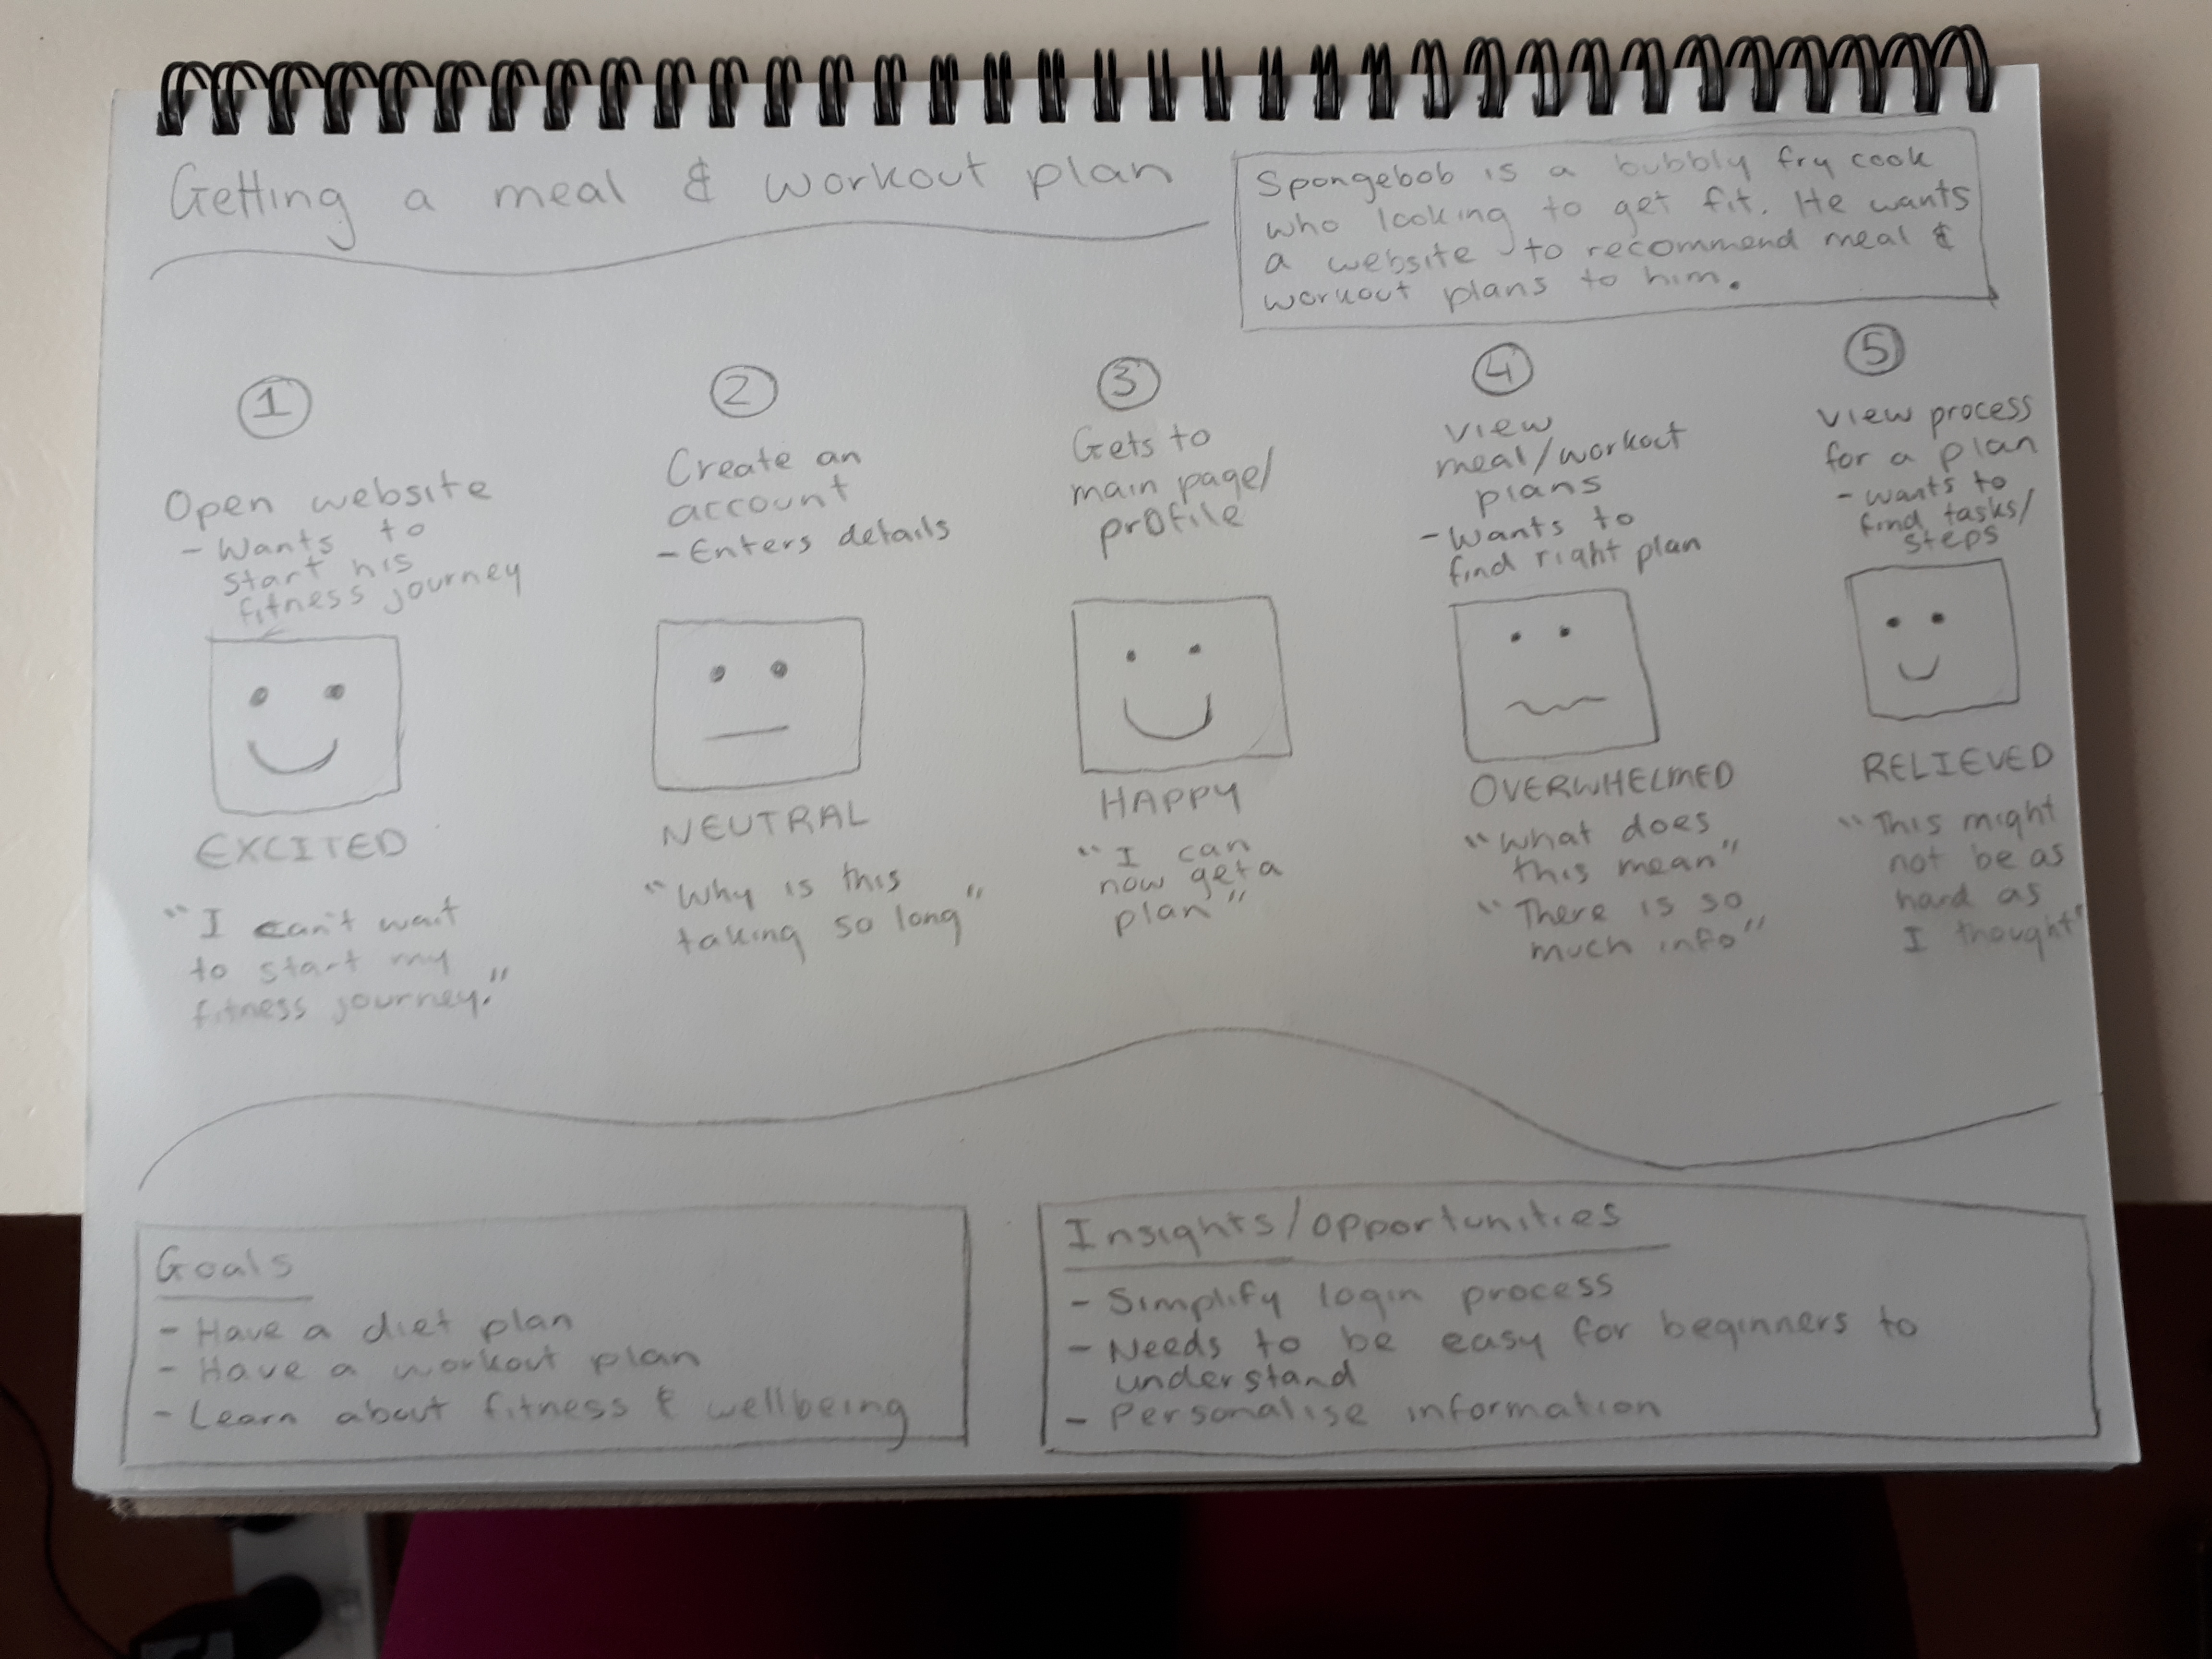 Getting a meal & workout plan
Spongebob is a bubbly fry cook
who looking to get fit. He wants
a website to recommend meal &
workout plans to him.
1
Open website
- Wants to
start his
fitness journey
EXCITED
"I can't wait
to start my
fitness journey."
2
Create an
account
- Enters details
NEUTRAL
"Why is this
taking so long"
3
Gets to
main page/
profile
HAPPY
"I can
now get a
plan"
4
View
meal/workout
plans
- Wants to
find right plan
OVERWHELMED
"What does
this mean"
"There is so
much info"
5
View process
for a plan
- Wants to
find tasks/
steps
RELIEVED
"This might
not be as
hard as
I thought"
Goals
- Have a diet plan
- Have a workout plan
- Learn about fitness & wellbeing
Insights/opportunities
- Simplify login process
- Needs to be easy for beginners to
understand
- Personalise information